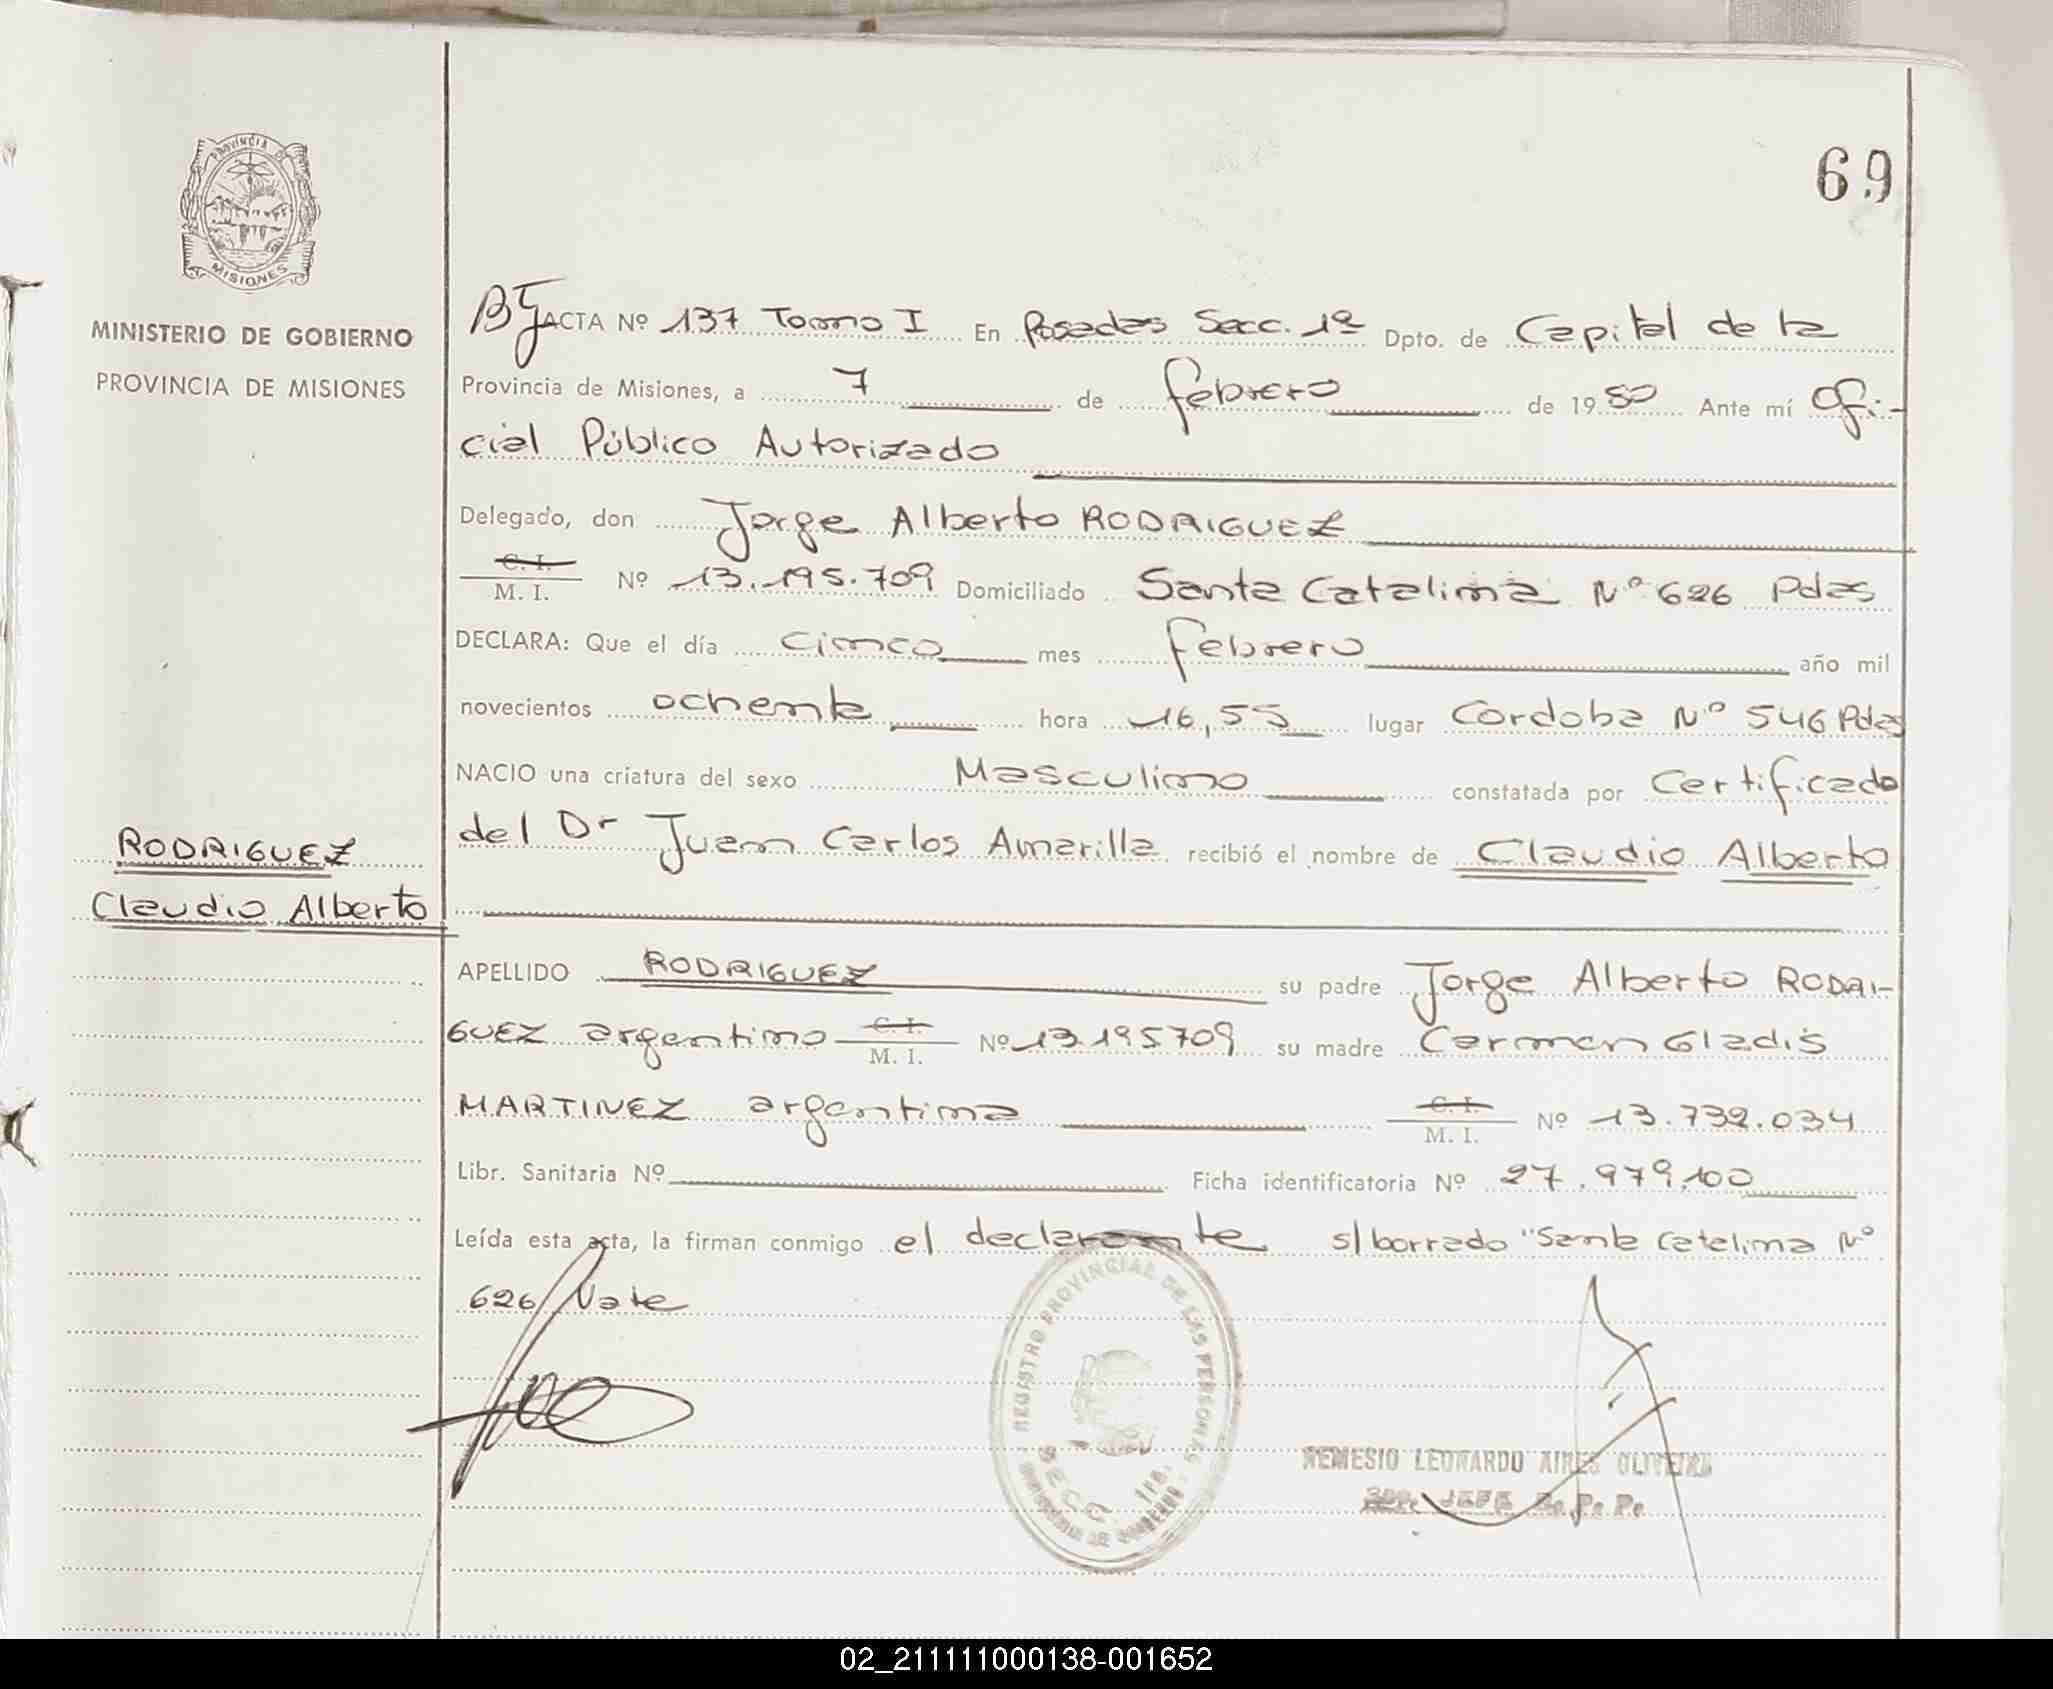 69
PROVINCIA DE
MISIONES
MINISTERIO DE GOBIERNO
PROVINCIA DE MISIONES
ACTA Nº 137 Tomo I En Posadas Secc. 1ª Dpto. de Capital de la
Provincia de Misiones, a 7 de febrero de 1980 Ante mí Ofi-
cial Público Autorizado
Delegado, don Jorge Alberto RODRIGUEZ
C. I.
M. I. Nº 13.195.709 Domiciliado Santa Catalina Nº 626 Pdas
DECLARA: Que el día cinco mes febrero año mil
novecientos ochenta hora 16,55 lugar Cordoba Nº 546 Pdas
NACIO una criatura del sexo Masculino constatada por Certificado
del Dr Juan Carlos Amarilla recibió el nombre de Claudio Alberto
RODRIGUEZ
Claudio Alberto
APELLIDO RODRIGUEZ su padre Jorge Alberto RODRI-
GUEZ argentino C. I.
M. I. Nº 13.195709 su madre Carmen Gladis
MARTINEZ argentina C. I.
M. I. Nº 13.732.034
Libr. Sanitaria Nº Ficha identificatoria Nº 27.979.100
Leída esta acta, la firman conmigo el declarante s/borrado "Santa Catalina Nº
626 Vale
REGISTRO PROVINCIAL DE LAS PERSONAS
SECC. 1ra.
MINISTERIO DE GOBIERNO
REMESIO LEONARDO AIRES OLIVEIRA
JEFE Ro. Po. Po.
02_211111000138-001652